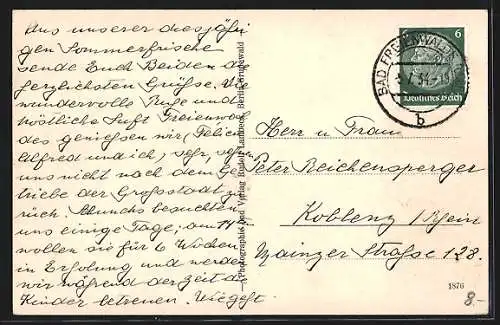 Aus unserer diesjähri-
gen Sommerfrische
sende Euch Beiden die
herzlichsten Grüße. Die
wundervolle Ruhe und
köstliche Luft Freienwal-
des genießen wir (Felicia
Alfred und ich) sehr, sehn
uns nicht nach dem Ge-
triebe der Großstadt zu-
rück. Munchs besuchten
uns einige Tage; am 14.
wollen sie für 6 Wochen
in Erholung und werden
wir während der Zeit die
Kinder betreuen. Wie geht
Photographie und Verlag Rudolf Berlin-Grunewald
6
BAD FREIENWALDE
7.34
b
Deutsches Reich
Herrn u Frau
Peter Reichensperger
Koblenz /Rhein
Mainzer Straße 128.
1876
8.-